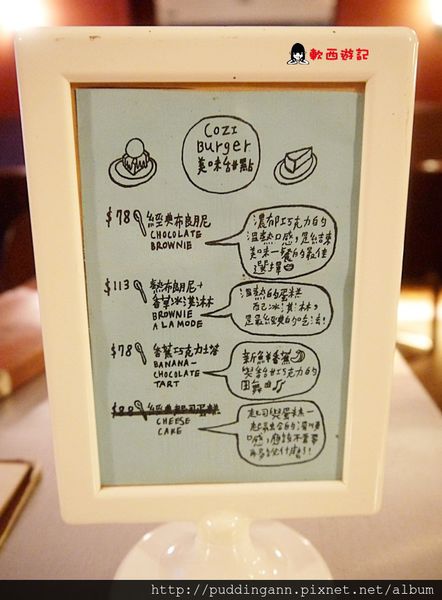 軟西遊記
Cozi
Burger
美味甜點
$78 經典布朗尼
CHOCOLATE
BROWNIE
濃郁巧克力的
溫熱口感,是結束
美味一餐的最佳
選擇
$113 熱布朗尼+
香草冰淇淋
BROWNIE
A LA MODE
溫熱的蛋糕
配冰淇淋,
是最經典的吃法!
$78 香蕉巧克力塔
BANANA-
CHOCOLATE
TART
新鮮香蕉
與甜巧克力的
圓舞曲
$88 經典起司蛋糕
CHEESE
CAKE
起司與蛋糕一
口感,應該不需要
再多說什麼!!
http://puddingann.pixnet.net/album